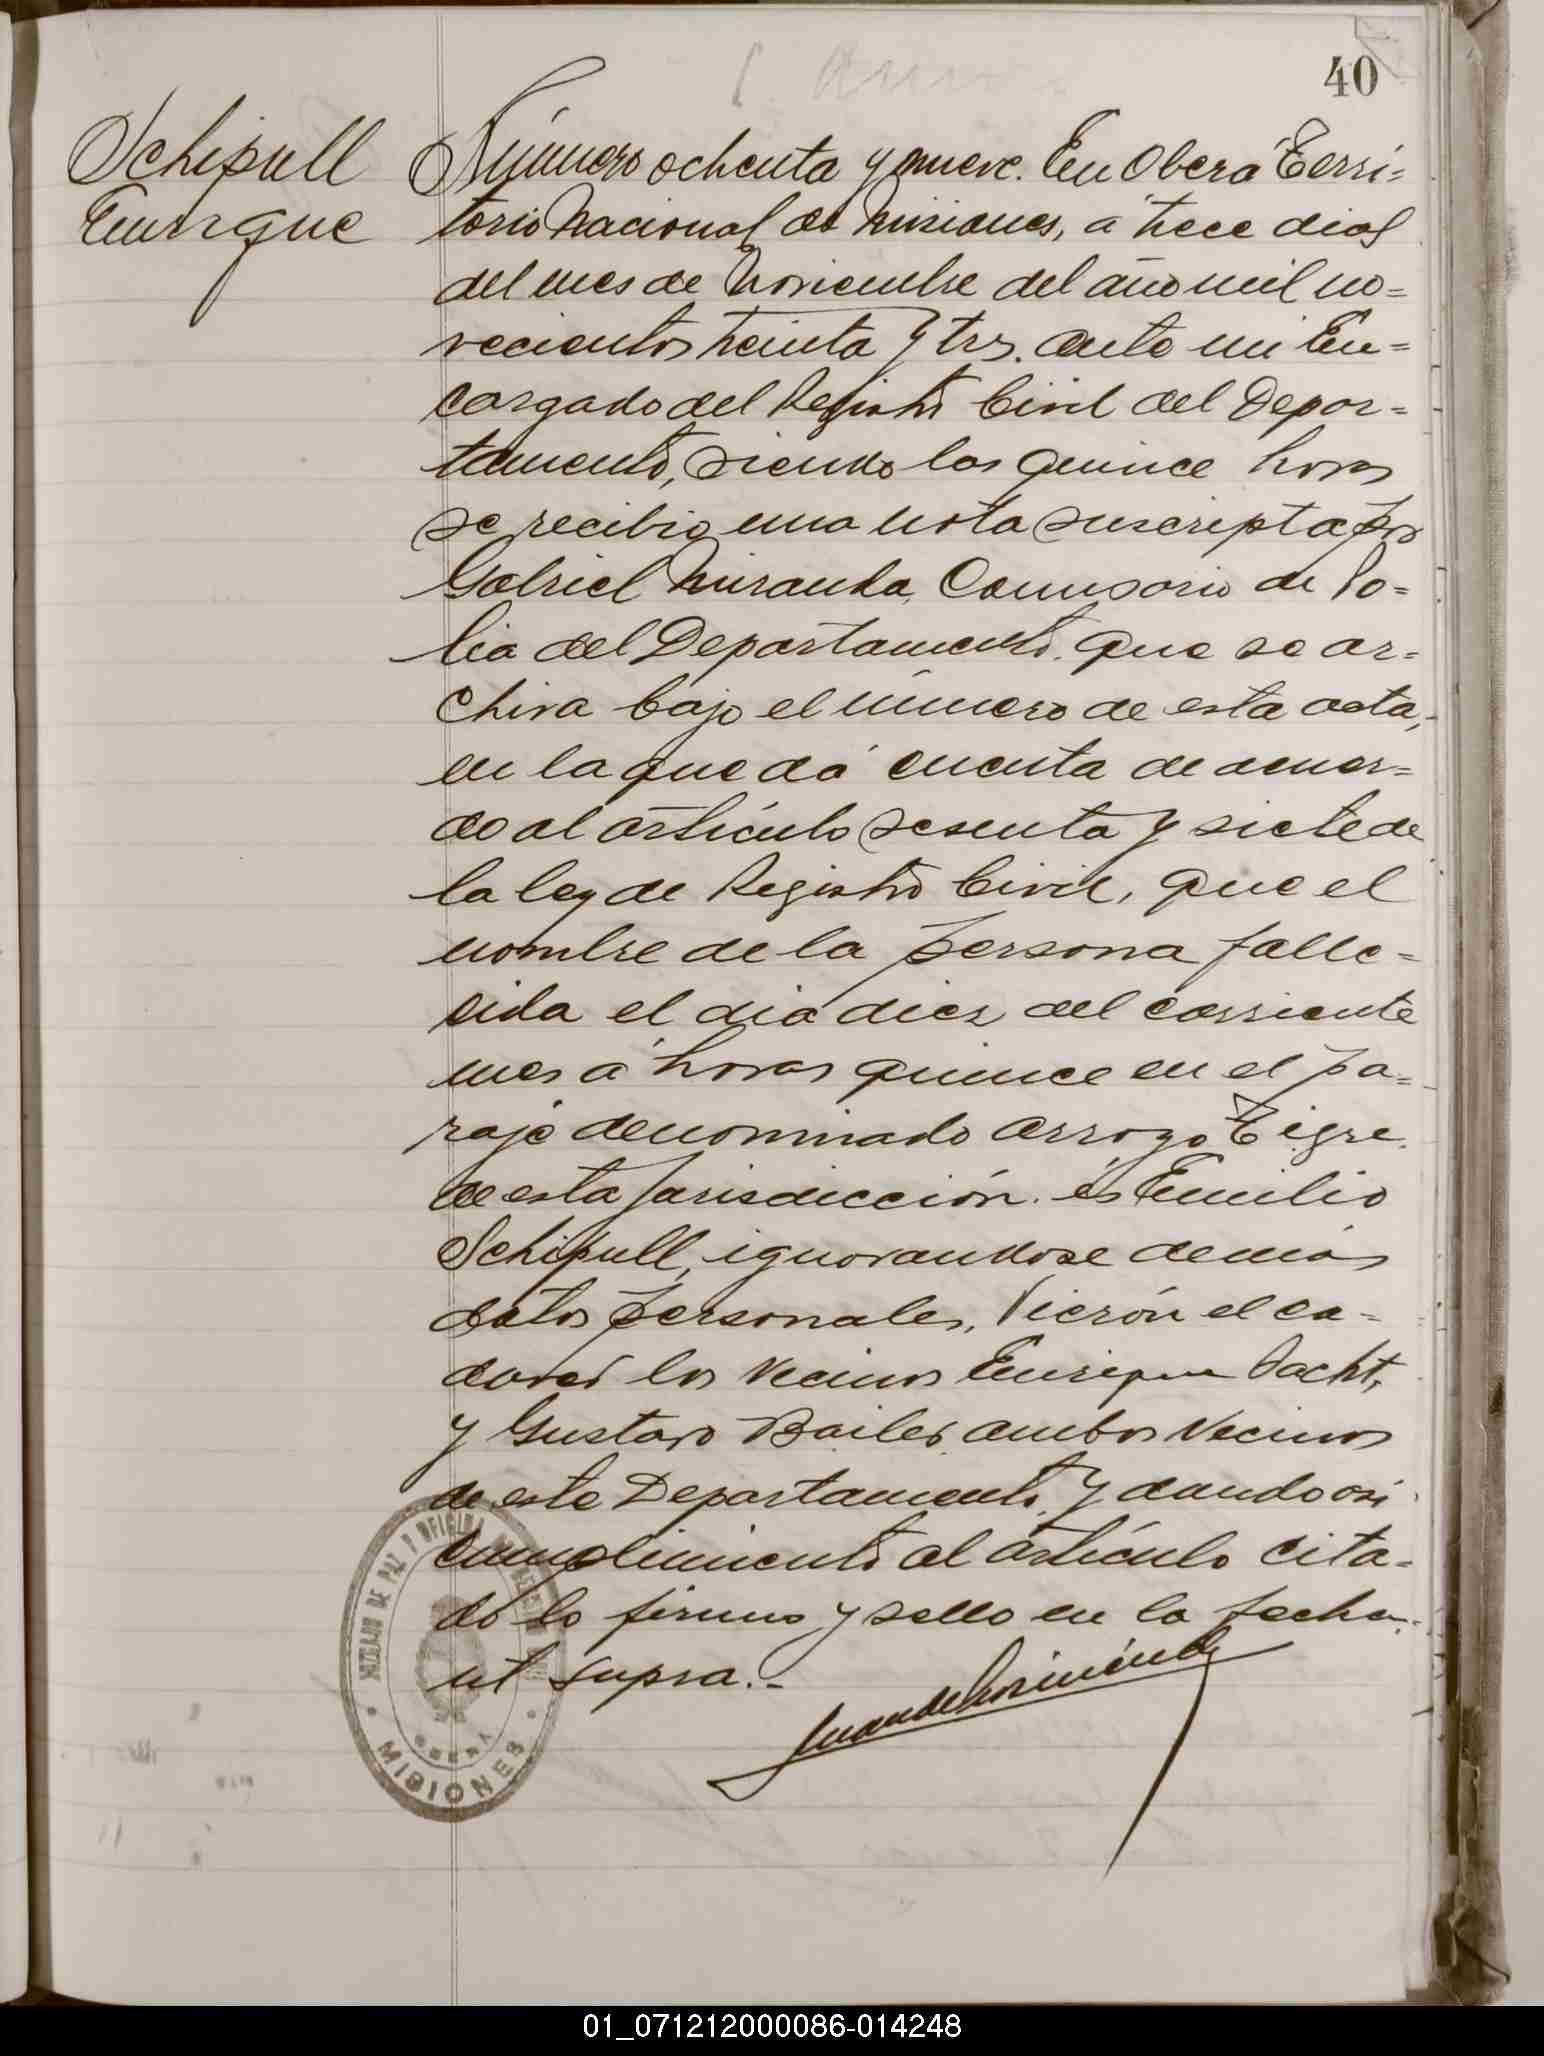 40
Schipull
Enrique
Número ochenta y nueve. En Oberá Terri=
torio Nacional de Misiones, á trece dias
del mes de Noviembre del año mil no=
vecientos treinta y tres. ante mi En=
cargado del Registro Civil del Depar=
tamento, siendo las quince horas
se recibió una nota suscripta por
Gabriel Miranda, Comisario de Po=
licia del Departamento. que se ar=
chiva bajo el número de esta acta,
en la que dá cuenta de acuer=
do al artículo sesenta y siete de
la ley de Registro Civil, que el
nombre de la persona falle=
sida el dia diez del corriente
mes á horas quince en el pa=
raje denominado arroyo Tigre.
de esta jurisdicción. és Emilio
Schipull, ignorandose demás
datos personales, Vierón el ca=
daver los vecinos Enrique Pacht,
y Gustavo Bailer ambos vecinos
de este Departamento, y dando asi
cumplimiento al artículo cita=
do lo firmo y sello en la fecha
ut supra.-
JUZGADO DE PAZ Y OFICINA DE
OBERÁ
MISIONES
01_071212000086-014248